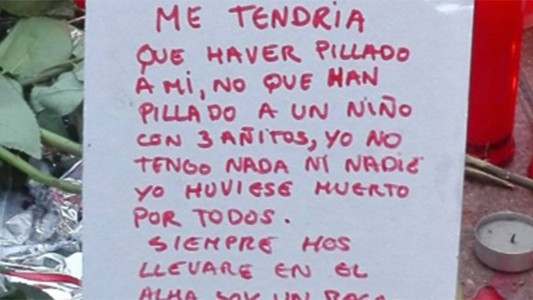 ME TENDRIA
QUE HAVER PILLADO
A MI, NO QUE HAN
PILLADO A UN NIÑO
CON 3 AÑITOS, YO NO
TENGO NADA NI NADIE
YO HUVIESE MUERTO
POR TODOS.
SIEMPRE HOS
LLEVARE EN EL
ALMA SOY UN